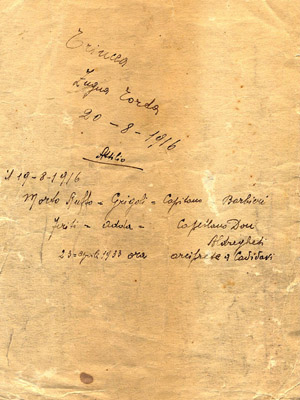 Trincea
Zugna Torta
20-8-1916
Attilio
il 19-8-1916
Morto Ruffo - Grigoli - Capitano Barbieri
feriti - Adda - Capellano Don
Aldregheti
23 aprile 1933 ora arciprete a Cadidavi